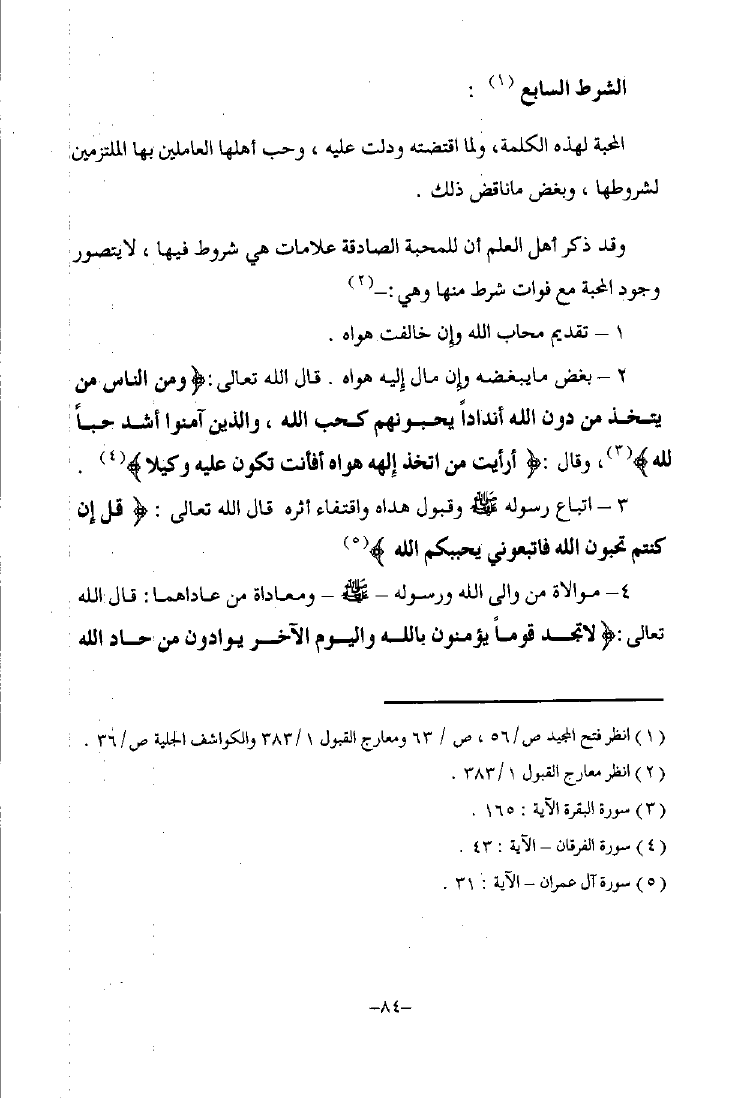 الشرط السابع (١) :
المحبة لهذه الكلمة، ولما اقتضته ودلت عليه ، وحب أهلها العاملين بها الملتزمين
لشروطها ، وبغض ماناقض ذلك .
وقد ذكر أهل العلم أن للمحبة الصادقة علامات هي شروط فيها ، لايتصور
وجود المحبة مع فوات شرط منها وهي :–(٢)
١ – تقديم محاب الله وإن خالفت هواه .
٢ – بغض مايبغضه وإن مال إليه هواه . قال الله تعالى :﴿ ومن الناس من
يتخذ من دون الله أنداداً يحبونهم كحب الله ، والذين آمنوا أشد حباً
لله ﴾(٣)، وقال :﴿ أرأيت من اتخذ إلهه هواه أفأنت تكون عليه وكيلا ﴾(٤) .
٣ – اتباع رسوله ﷺ وقبول هداه واقتفاء أثره قال الله تعالى : ﴿ قل إن
كنتم تحبون الله فاتبعوني يحببكم الله ﴾(٥)
٤– موالاة من والى الله ورسوله – ﷺ – ومعاداة من عاداهما : قال الله
تعالى :﴿ لاتجد قوماً يؤمنون بالله واليوم الآخر يوادون من حاد الله
(١) انظر فتح المجيد ص/٥٦ ، ص / ٦٣ ومعارج القبول ٣٨٣/١ والكواشف الجلية ص/٣٦ .
(٢) انظر معارج القبول ٣٨٣/١ .
(٣) سورة البقرة الآية : ١٦٥ .
(٤) سورة الفرقان – الآية : ٤٣ .
(٥) سورة آل عمران – الآية : ٣١ .
–٨٤–